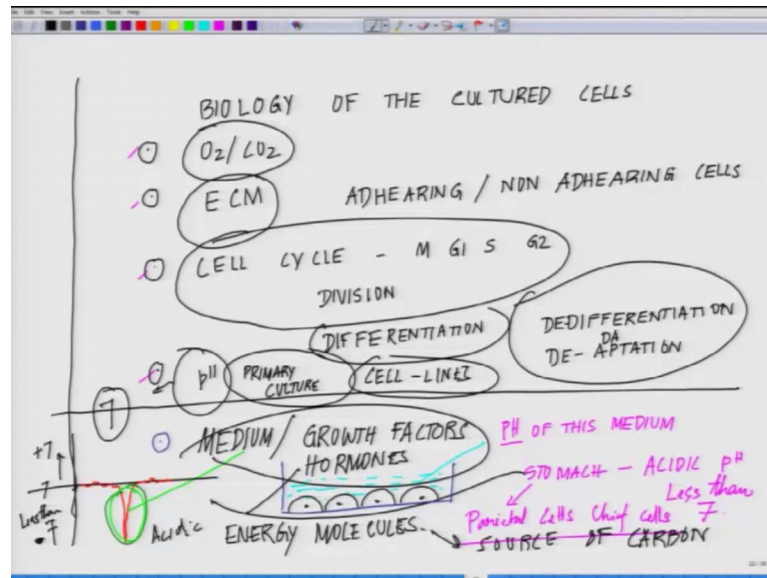 BIOLOGY OF THE CULTURED CELLS
O2/CO2
ECM ADHEARING / NON ADHEARING CELLS
CELL CYCLE - M G1 S G2
DIVISION
DIFFERENTIATION
DEDIFFERENTIATION
DA
DE-APTATION
pH PRIMARY CULTURE CELL-LINES
7
MEDIUM / GROWTH FACTORS
HORMONES
PH OF THIS MEDIUM
+7
7
Less than
7
STOMACH - ACIDIC pH
Less than
7.
Parietal Cells Chief cells
Acidic
ENERGY MOLECULES.
SOURCE OF CARBON